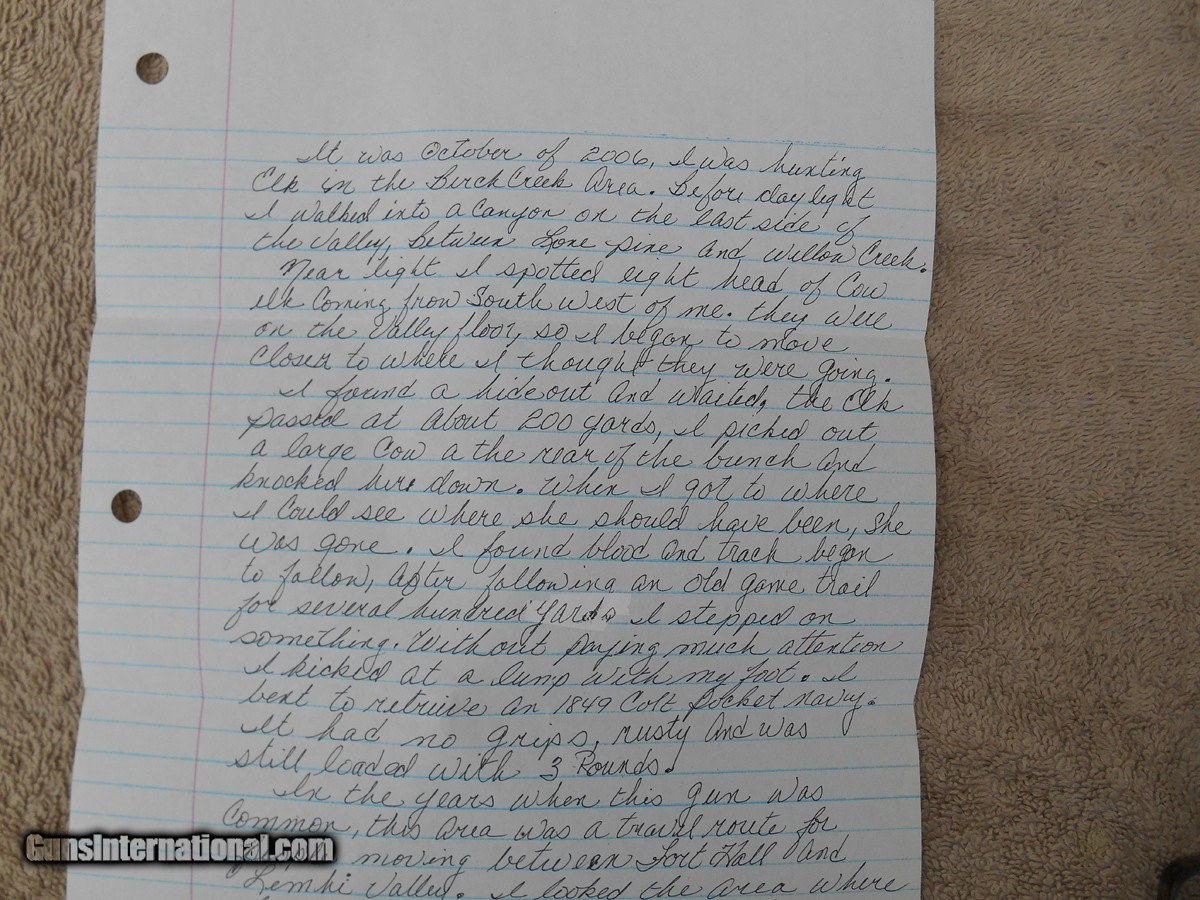 It was October of 2006, I was hunting
Elk in the Birch Creek Area. Before daylight
I walked into a canyon on the east side of
the Valley, between Lone pine and Willow Creek.
Near light I spotted eight head of Cow
elk Coming from South west of me. they were
on the Valley floor, so I began to move
Closer to where I thought they were going.
I found a hideout and waited, the Elk
passed at about 200 yards, I picked out
a large Cow a the rear of the bunch and
knocked here down. When I got to where
I Could see where she should have been, she
was gone. I found blood and track began
to follow, After following an old game trail
for several hundred yards I stepped on
something. Without paying much attention
I kicked at a lump with my foot. I
bent to retrieve an 1849 Colt Pocket navy.
It had no grips, rusty and was
still loaded with 3 Rounds.
In the years when this gun was
Common, this area was a travel route for
moving between Fort Hall and
Lemhi Valley. I looked the area where
GunsInternational.com